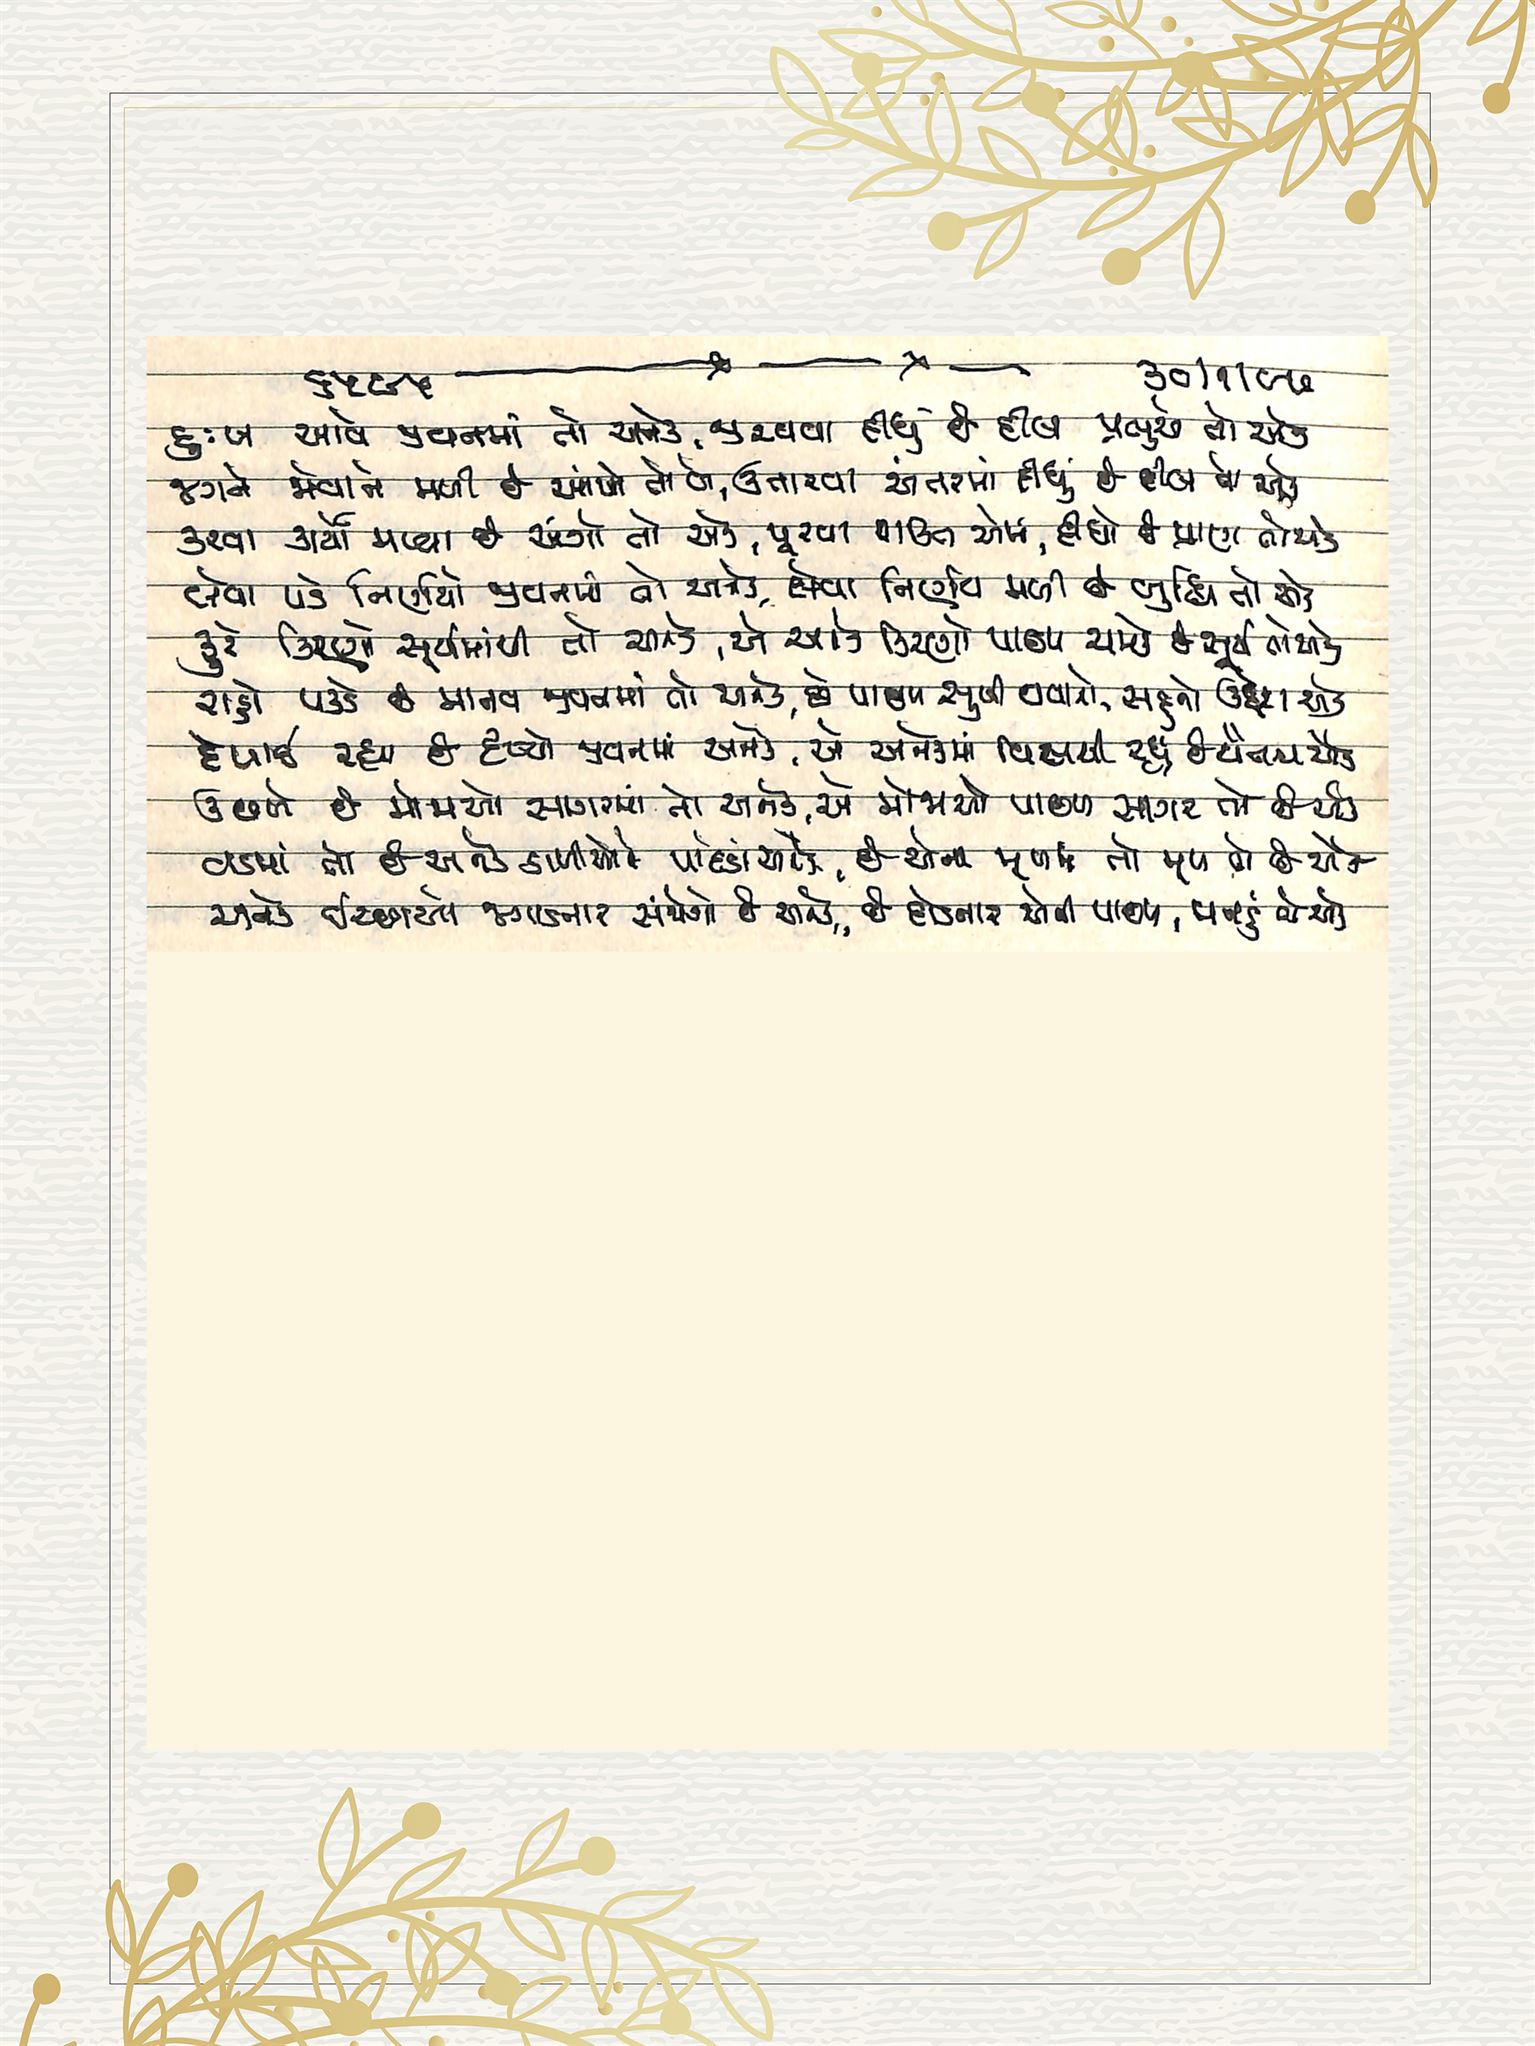 ૬૫૯૫ ૩૦/૧/૯૭
દુઃખ આવે જીવનમાં તો અનેક, જીરવવા દીધું છે દીલ પ્રભુએ તો એક
જગને જોવાને મળી છે આંખો તો બે, ઉતારવા અંતરમાં દીધું છે દીલ તો એક
કરવા કાર્યો મળ્યા છે અંગો તો અનેક, પૂરવા શક્તિ એમાં, દીધો છે પ્રાણ તો એક
લેવા પડે નિર્ણયો જીવનમાં તો અનેક, લેવા નિર્ણય મળી છે બુદ્ધિ તો એક
ફુટે કિરણો સૂર્યમાંથી તો અનેક, એ અનેક કિરણો પાછળ ચમકે છે સૂર્ય તો એક
રાહો પકડે છે માનવ જીવનમાં તો અનેક, છે પાછળ સુખી થવાનો, સહુનો ઉદ્દેશ એક
દેખાઈ રહ્યા છે દૃશ્યો જીવનમાં અનેક, એ અનેકમાં વિલસી રહ્યું છે ચૈતન્ય એક
ઉછળે છે મોજાઓ સાગરમાં તો અનેક, એ મોજાઓ પાછળ સાગર તો છે એક
વડમાં તો છે અનેક ડાળીઓને પાંદડાં અનેક, છે એના મૂળમાં તો મૂળ તો છે એક
અનેક ઈચ્છાઓ જગાડનાર સંયોગો છે અનેક, છે દોડનાર એની પાછળ, મનડું તો એક